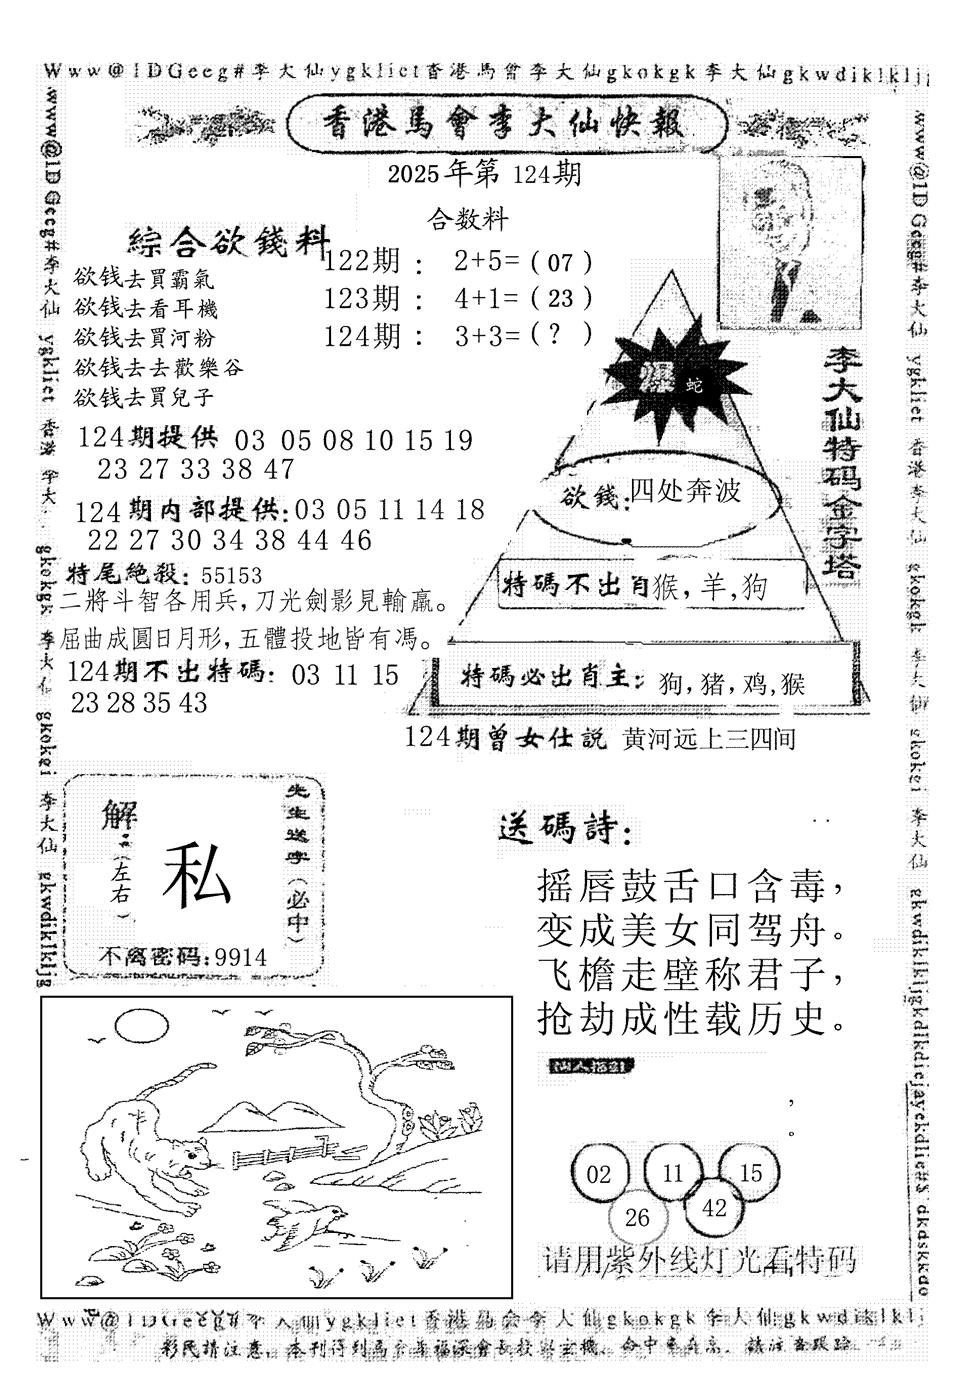 Www@1DGeeg#李大仙ygkliet香港馬會李大仙gkokgk李大仙gkwdiklkljg
香港馬會李大仙快報
2025年第 124期
合数料
綜合欲錢料
122期： 2+5=（07）
123期： 4+1=（23）
124期： 3+3=（?）
欲钱去買霸氣
欲钱去看耳機
欲钱去買河粉
欲钱去去歡樂谷
欲钱去買兒子
爆 蛇
李大仙特码金字塔
124期提供 03 05 08 10 15 19
23 27 33 38 47
欲錢:四处奔波
124期内部提供:03 05 11 14 18
22 27 30 34 38 44 46
特尾絶殺: 55153
特碼不出肖猴, 羊,狗
二將斗智各用兵,刀光劍影見輸贏。
屈曲成圓日月形,五體投地皆有馮。
124期不出特碼: 03 11 15
23 28 35 43
特碼必出肖主: 狗,猪,鸡,猴
124期曾女仕説 黄河远上三四间
解:(左右)
私
先生送字(必中)
不离密码:9914
送碼詩:
摇唇鼓舌口含毒,
变成美女同驾舟。
飞檐走壁称君子,
抢劫成性载历史。
,
。
02 11 15
26 42
请用紫外线灯光看特码
www@1DGeeg#李大仙 ygkliet 香港 李大仙 gkokgk 李大仙 gkokei 李大仙 gkwdiklkljg
www@1DGeeg#李大仙 ygkliet 香港李大仙 gkokgk 李大仙 gkokei 李大仙 gkwdiklkljgkdlkdiejayekdlie#$ dkdskkdo
Www@1DGeeg#李大仙ygkliet香港馬会李大仙gkokgk李大仙gkwdiklklj
彩民請注意,本刊得到馬会